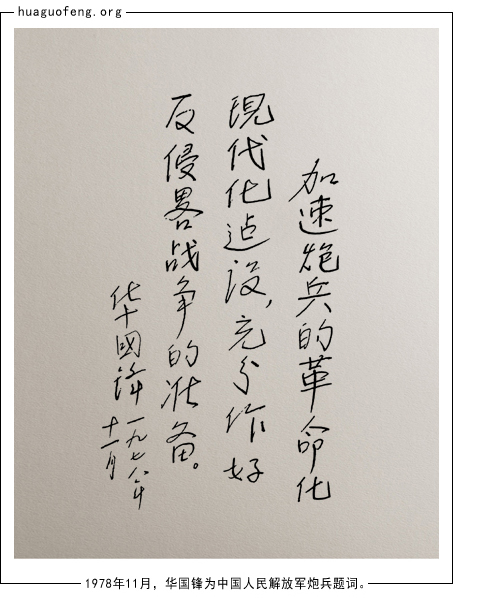 huaguofeng.org
加速炮兵的革命化
現代化迠设，充分作好
反侵畧战争的准备。
华國锋一九七八年
十一月
1978年11月，华国锋为中国人民解放军炮兵题词。